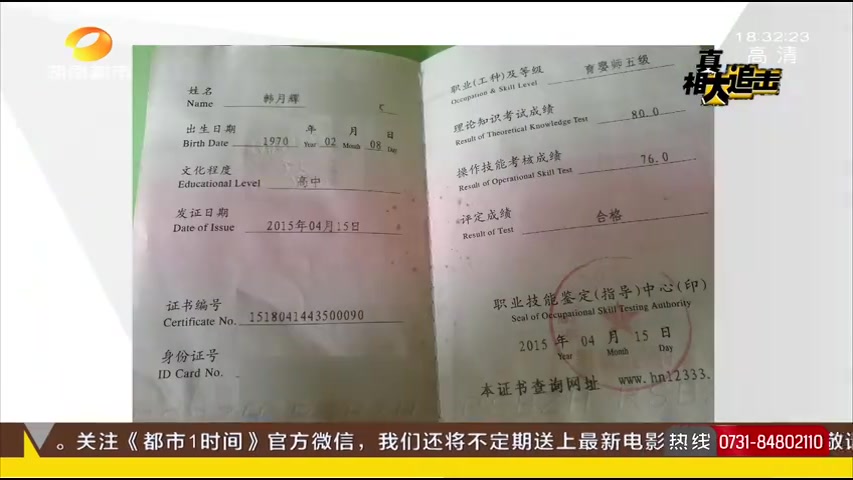 湖南都市
18:32:23
高清
真相大追击
姓名
Name 韩月辉
出生日期 年 月 日
Birth Date 1970 Year 02 Month 08 Day
文化程度
Educational Level 高中
发证日期
Date of Issue 2015年04月15日
证书编号
Certificate No. 1518041443500090
身份证号
ID Card No.
职业(工种)及等级 育婴师五级
Occupation & Skill Level
理论知识考试成绩 80.0
Result of Theoretical Knowledge Test
操作技能考核成绩 76.0
Result of Operational Skill Test
评定成绩 合格
Result of Test
职业技能鉴定(指导)中心(印)
Seal of Occupational Skill Testing Authority
2015 年 04 月 15 日
Year Month Day
本证书查询网址 www.hn12333.
。关注《都市1时间》官方微信，我们还将不定期送上最新电影
热线 0731-84802110
敬请